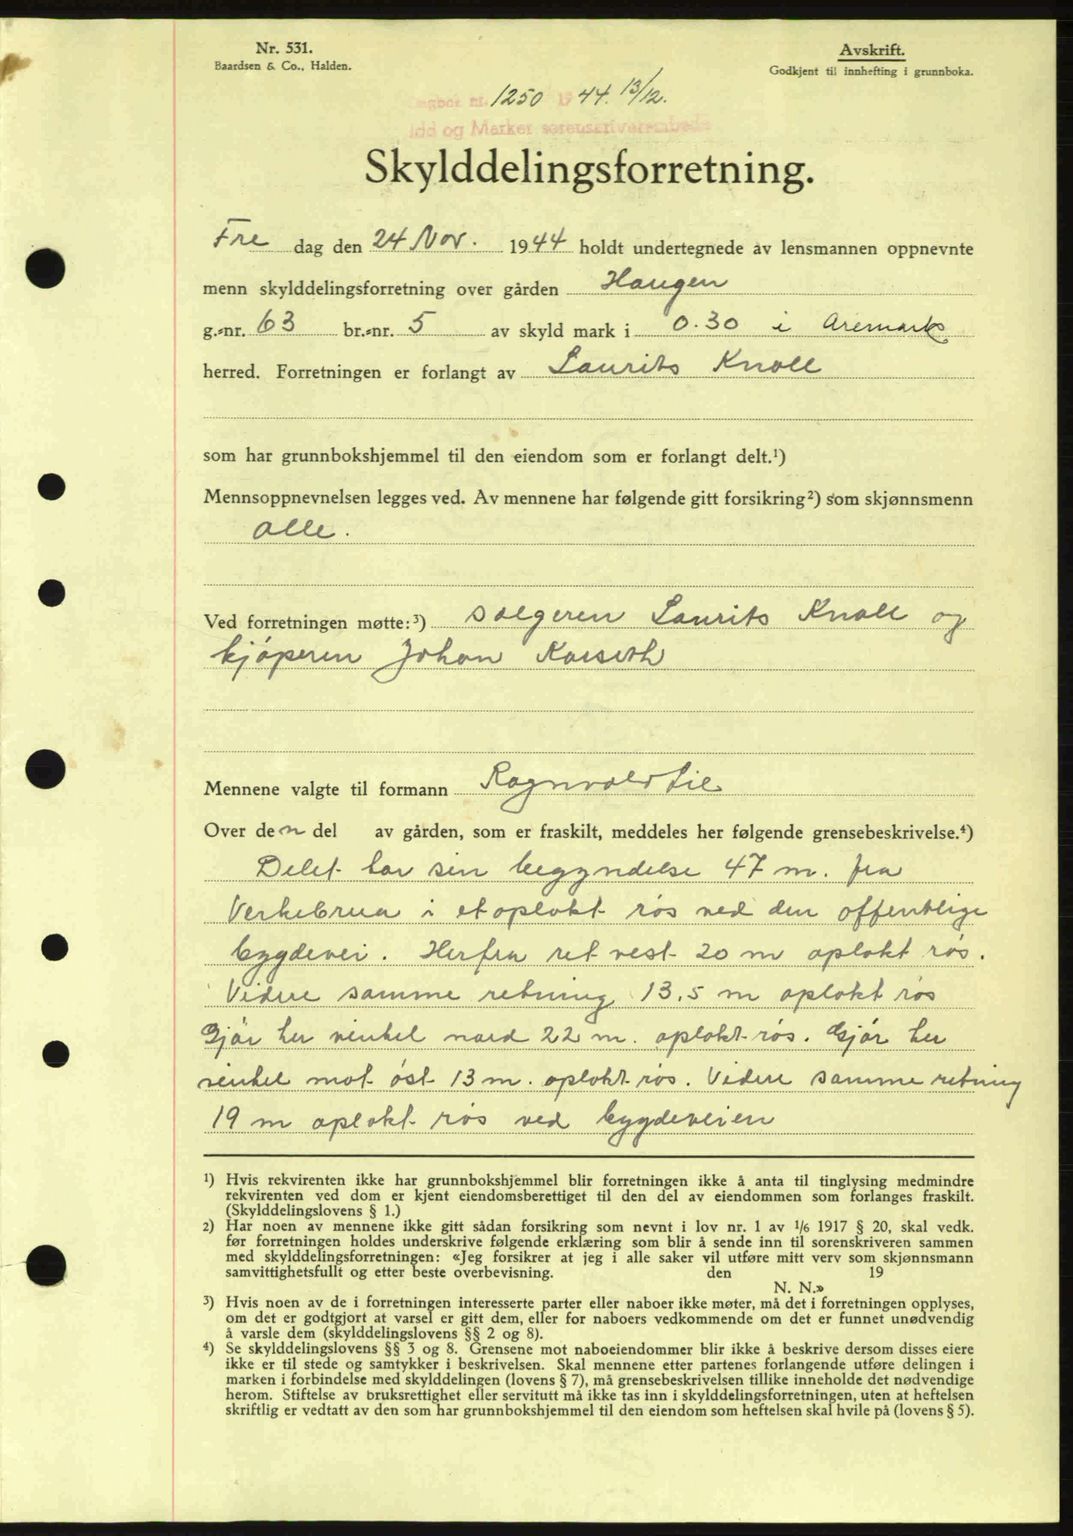 Nr. 531.
Baardsen & Co., Halden.
Avskrift.
Godkjent til innhefting i grunnboka.
Dagbok nr. 1250 1944. 13/12.
Idd og Marker sorenskriverembede
Skylddelingsforretning.
Fre dag den 24 Nov. 1944 holdt undertegnede av lensmannen oppnevnte
menn skylddelingsforretning over gården Haugen
g.-nr. 63 br.-nr. 5 av skyld mark i 0.30 i Aremark
herred. Forretningen er forlangt av Laurits Knoll
som har grunnbokshjemmel til den eiendom som er forlangt delt.¹)
Mennsoppnevnelsen legges ved. Av mennene har følgende gitt forsikring²) som skjønnsmenn
alle.
Ved forretningen møtte:³) sælgeren Laurits Knoll og
kjöperen Johan
Mennene valgte til formann Ragnvald Lie
Over den del av gården, som er fraskilt, meddeles her følgende grensebeskrivelse.⁴)
Delet har sin begyndelse 47 m. fra
Verkebrua i et oplakt rös ved den offentlige
bygdevei. Herfra ret vest 20 m oplakt rös.
Videre samme retning 13,5 m oplakt rös
Gjör her vinkel nord 22 m. oplakt rös. Gjör her
vinkel mot öst 13 m. oplakt rös. Videre samme retning
19 m oplakt rös ved bygdeveien
¹) Hvis rekvirenten ikke har grunnbokshjemmel blir forretningen ikke å anta til tinglysing medmindre
rekvirenten ved dom er kjent eiendomsberettiget til den del av eiendommen som forlanges fraskilt.
(Skylddelingslovens § 1.)
²) Har noen av mennene ikke gitt sådan forsikring som nevnt i lov nr. 1 av 1/6 1917 § 20, skal vedk.
før forretningen holdes underskrive følgende erklæring som blir å sende inn til sorenskriveren sammen
med skylddelingsforretningen: «Jeg forsikrer at jeg i alle saker vil utføre mitt verv som skjønnsmann
samvittighetsfullt og etter beste overbevisning. den 19
N. N.»
³) Hvis noen av de i forretningen interesserte parter eller naboer ikke møter, må det i forretningen opplyses,
om det er godtgjort at varsel er gitt dem, eller for naboers vedkommende om det er funnet unødvendig
å varsle dem (skylddelingslovens §§ 2 og 8).
⁴) Se skylddelingslovens §§ 3 og 8. Grensene mot naboeiendommer blir ikke å beskrive dersom disses eiere
ikke er til stede og samtykker i beskrivelsen. Skal mennene etter partenes forlangende utføre delingen i
marken i forbindelse med skylddelingen (lovens § 7), må grensebeskrivelsen tillike inneholde det nødvendige
herom. Stiftelse av bruksrettighet eller servitutt må ikke tas inn i skylddelingsforretningen, uten at heftelsen
skriftlig er vedtatt av den som har grunnbokshjemmel til den eiendom som heftelsen skal hvile på (lovens § 5).